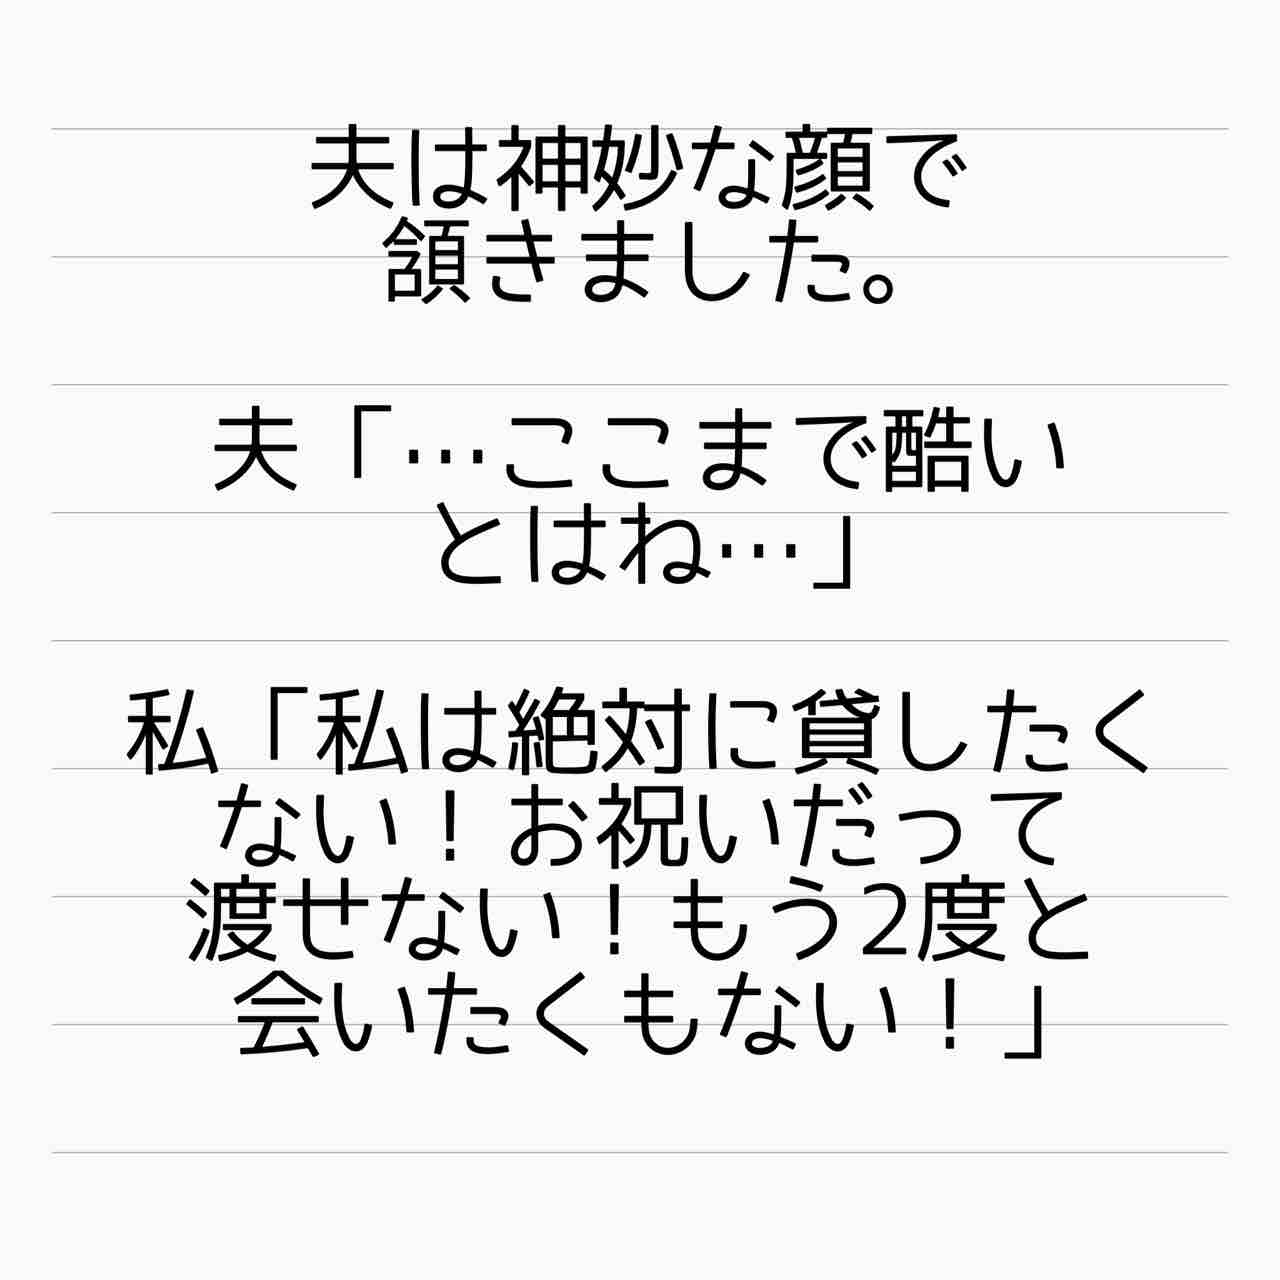 夫は神妙な顔で
頷きました。
夫「…ここまで酷い
とはね…」
私「私は絶対に貸したく
ない！お祝いだって
渡せない！もう2度と
会いたくもない！」